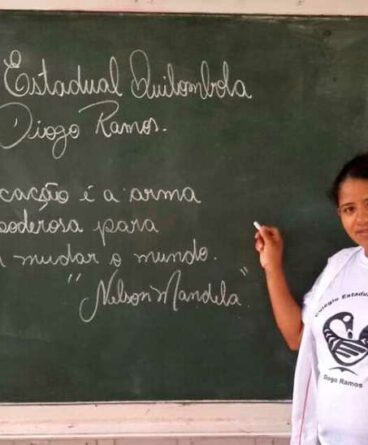 Estadual Quilombola
Diogo Ramos.
cação é a arma
poderosa para
mudar o mundo.
"Nelson Mandela."
Colégio Estadual
Diogo Ramos